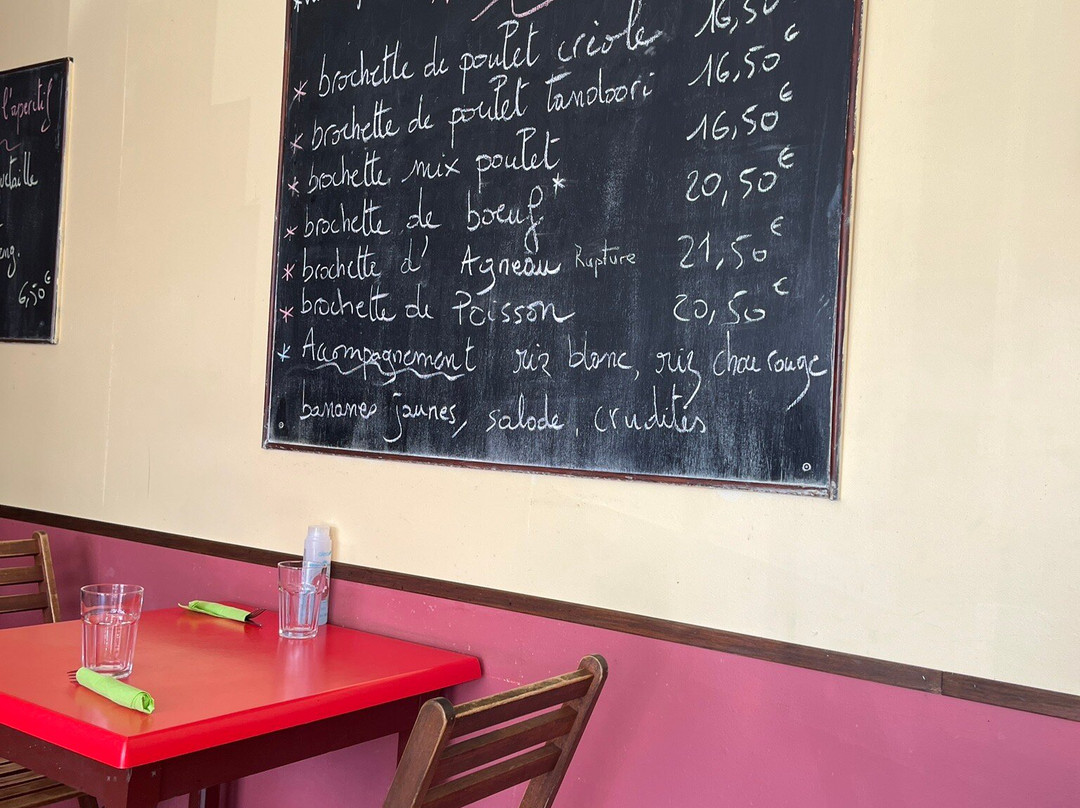 l'aperitif
6,50€
* brochette de poulet créole 16,50
* brochette de poulet Tandoori 16,50€
* brochette mix poulet 16,50€
* brochette de boeuf* 20,50€
* brochette d'Agneau Rupture 21,50€
* brochette de Poisson 20,50€
* Accompagnement riz blanc, riz chou rouge
bananes jaunes, salade, crudités